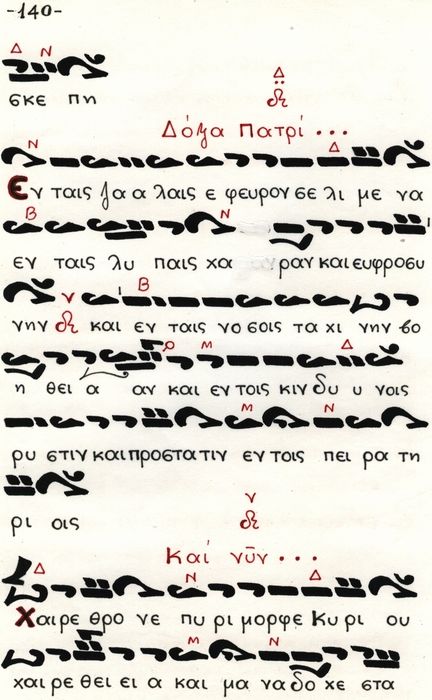 -140-
Δ Ν
σκε πη
Δ
Δόξα Πατρί ...
Ν Δ
Εν ταις ζα α λαις ε φευρον σε λι με να
Β Ν
εν ταις λυ παις χα ραν και ευφροσυ
ν Β
νην και εν ταις νο σοις τα χι νην βο
Μ Δ
η θει α αν και εν τοις κιν δυ υ νοις
Μ Ν
ρυ στιν και προστα τιν εν τοις πει ρα τη
ν
ρι οις
Καί νῦν ...
Δ Ν Δ
Χαιρε θρο νε πυ ρι μορφε Κυ ρι ου
Μ Ν
χαι ρε θει ει α και μα να δο χε στα